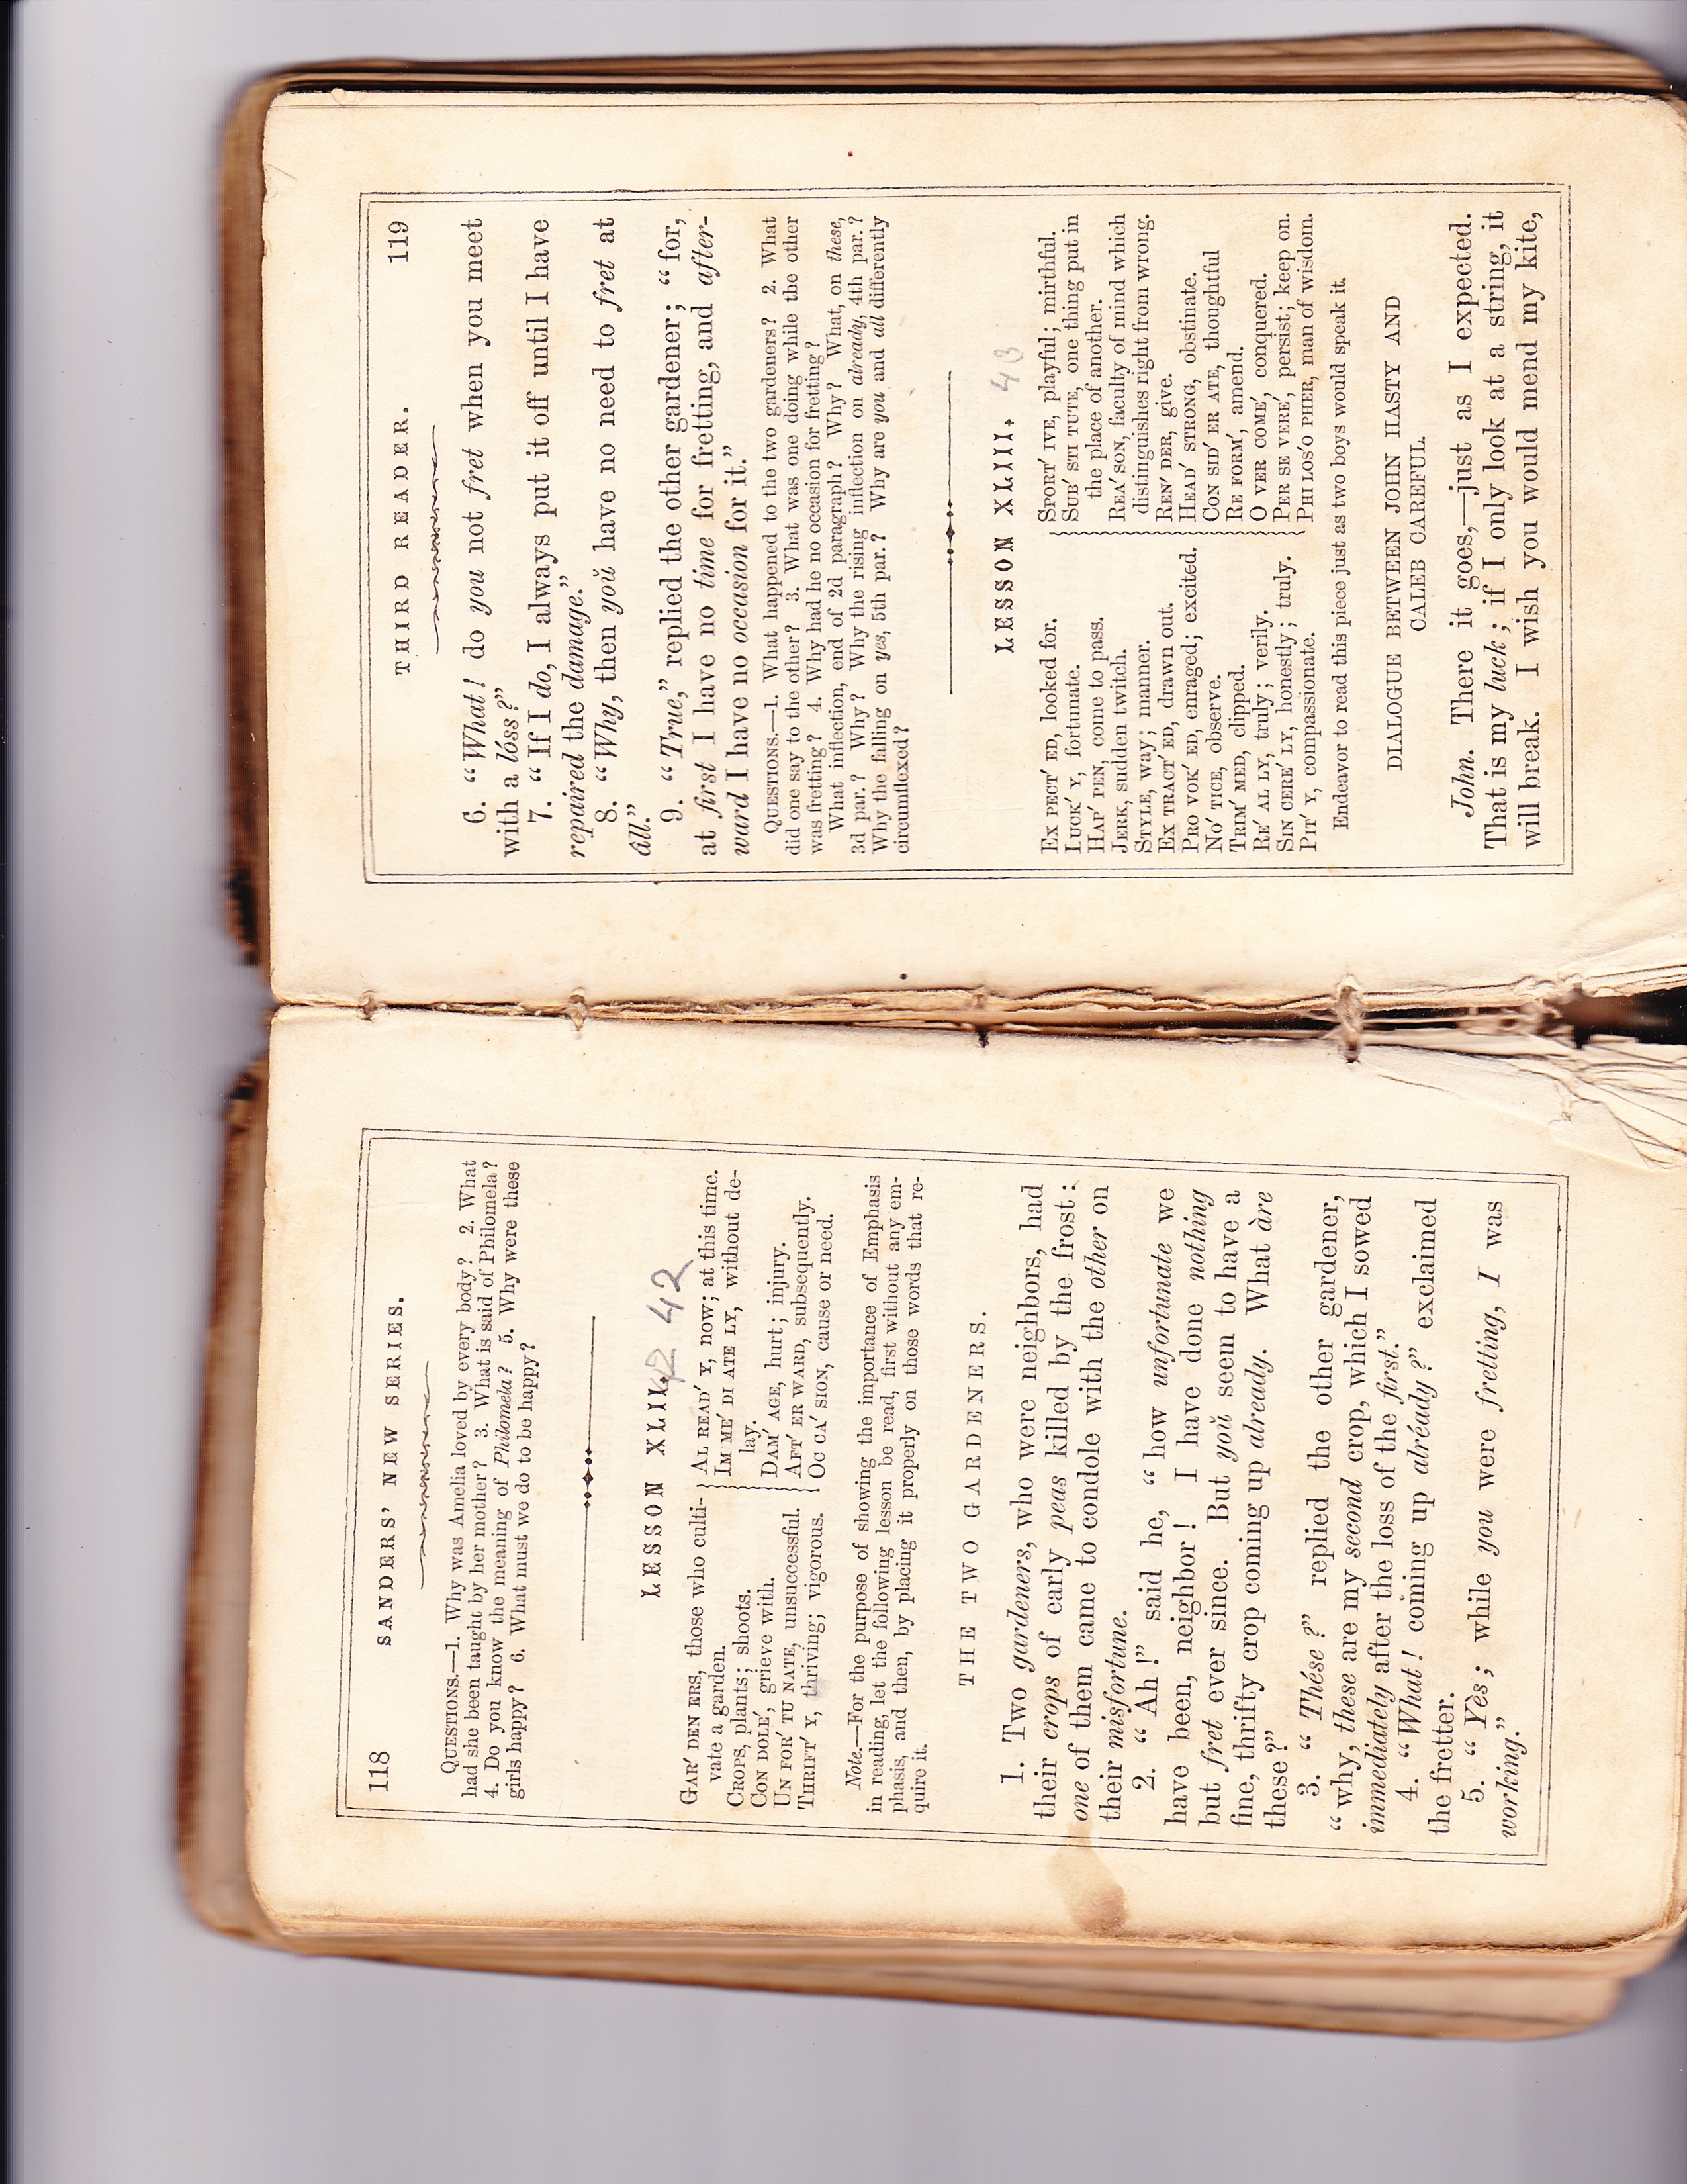 118 SANDERS' NEW SERIES.
QUESTIONS.—1. Why was Amelia loved by every body? 2. What
had she been taught by her mother? 3. What is said of Philomela?
4. Do you know the meaning of Philomela? 5. Why were these
girls happy? 6. What must we do to be happy?
LESSON XLII. 42 42
GAR′ DEN ERS, those who culti-
vate a garden.
CROPS, plants; shoots.
CON DOLE′, grieve with.
UN FOR′ TU NATE, unsuccessful.
THRIFT′ Y, thriving; vigorous.
AL READ′ Y, now; at this time.
IM ME′ DI ATE LY, without de-
lay.
DAM′ AGE, hurt; injury.
AFT′ ER WARD, subsequently.
OC CA′ SION, cause or need.
Note.—For the purpose of showing the importance of Emphasis
in reading, let the following lesson be read, first without any em-
phasis, and then, by placing it properly on those words that re-
quire it.
THE TWO GARDENERS.
1. Two gardeners, who were neighbors, had
their crops of early peas killed by the frost:
one of them came to condole with the other on
their misfortune.
2. “Ah!” said he, “how unfortunate we
have been, neighbor! I have done nothing
but fret ever since. But yoŭ seem to have a
fine, thrifty crop coming up already. What àre
these?”
3. “Thése?” replied the other gardener,
“why, these are my second crop, which I sowed
immediately after the loss of the first.”
4. “What! coming up alréady?” exclaimed
the fretter.
5. “Yès; while you were fretting, I was
working.”
THIRD READER. 119
6. “What! do you not fret when you meet
with a lóss?”
7. “If I do, I always put it off until I have
repaired the damage.”
8. “Why, then yoŭ have no need to fret at
ăll.”
9. “True,” replied the other gardener; “for,
at first I have no time for fretting, and after-
ward I have no occasion for it.”
QUESTIONS.—1. What happened to the two gardeners? 2. What
did one say to the other? 3. What was one doing while the other
was fretting? 4. Why had he no occasion for fretting?
What inflection, end of 2d paragraph? Why? What, on these,
3d par.? Why? Why the rising inflection on already, 4th par.?
Why the falling on yes, 5th par.? Why are you and all differently
circumflexed?
LESSON XLIII. 43
EX PECT′ ED, looked for.
LUCK′ Y, fortunate.
HAP′ PEN, come to pass.
JERK, sudden twitch.
STYLE, way; manner.
EX TRACT′ ED, drawn out.
PRO VOK′ ED, enraged; excited.
NO′ TICE, observe.
TRIM′ MED, clipped.
RE′ AL LY, truly; verily.
SIN CERE′ LY, honestly; truly.
PIT′ Y, compassionate.
SPORT′ IVE, playful; mirthful.
SUB′ STI TUTE, one thing put in
the place of another.
REA′ SON, faculty of mind which
distinguishes right from wrong.
REN′ DER, give.
HEAD′ STRONG, obstinate.
CON SID′ ER ATE, thoughtful
RE FORM′, amend.
O VER COME′, conquered.
PER SE VERE′, persist; keep on.
PHI LOS′ O PHER, man of wisdom.
Endeavor to read this piece just as two boys would speak it.
DIALOGUE BETWEEN JOHN HASTY AND
CALEB CAREFUL.
John. There it goes,—just as I expected.
That is my luck; if I only look at a string, it
will break. I wish you would mend my kite,